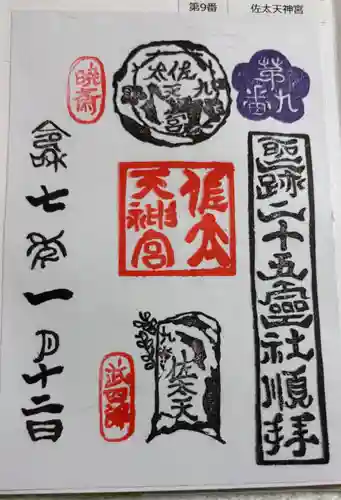 第9番
佐太天神宮
第九番
聖跡二十五霊社順拝
佐太天神宮
九
佐太
天神宮
九番
佐太天
暁斎
令和七年一月十二日